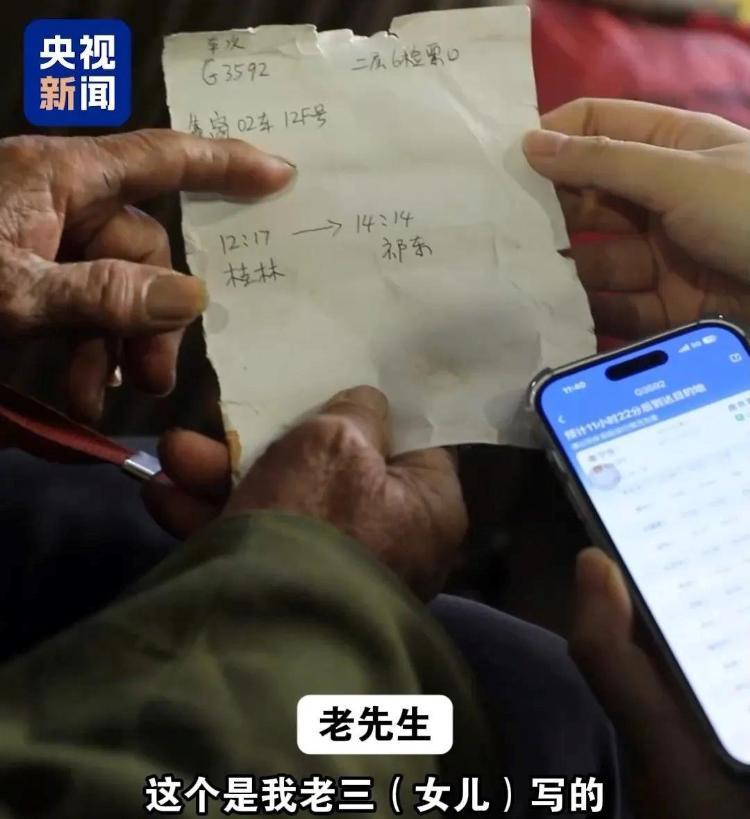 央视
新闻
车次
G3592
二层6检票口
靠窗02车12F号
12:17
14:14
桂林
祁东
11:40
G3592
预计11小时22分后到达目的地
老先生
这个是我老三（女儿）写的